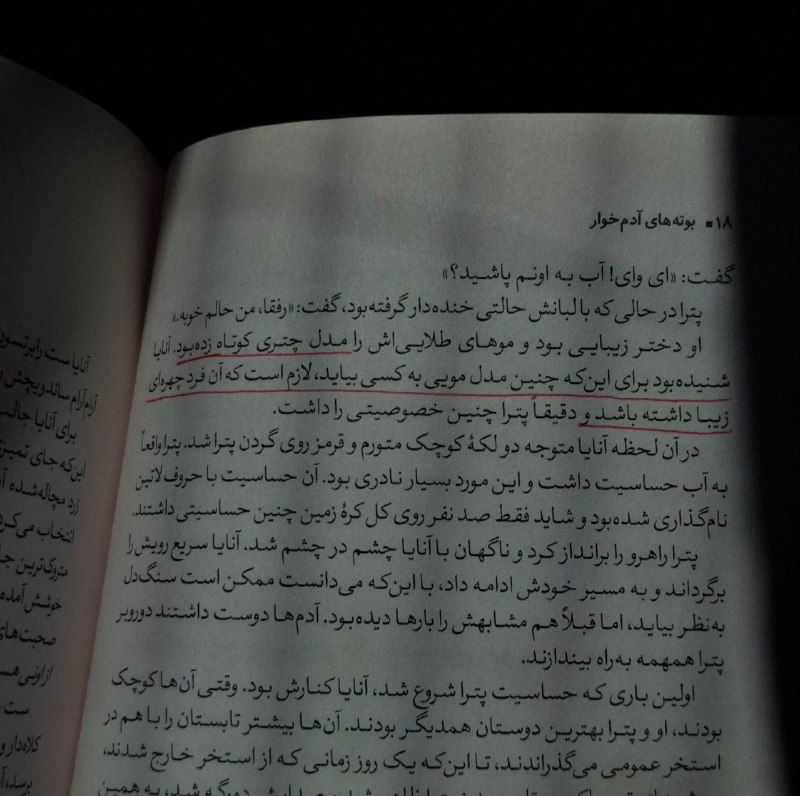 ۱۸ ■ بوته‌های آدم‌خوار
گفت: «ای وای! آب به اونم پاشید؟»
پترا در حالی که با لبانش حالتی خنده‌دار گرفته بود، گفت: «رفقا، من حالم خوبه.»
او دختر زیبایی بود و موهای طلایی‌اش را مدل چتری کوتاه زده‌بود. آنایا
شنیده‌بود برای این‌که چنین مدل مویی به کسی بیاید، لازم است که آن فرد چهره‌ای
زیبا داشته باشد و دقیقاً پترا چنین خصوصیتی را داشت.
در آن لحظه آنایا متوجه دو لکهٔ کوچک متورم و قرمز روی گردن پترا شد. پترا واقعاً
به آب حساسیت داشت و این مورد بسیار نادری بود. آن حساسیت با حروف لاتین
نام‌گذاری شده‌بود و شاید فقط صد نفر روی کل کرهٔ زمین چنین حساسیتی داشتند.
پترا راهرو را برانداز کرد و ناگهان با آنایا چشم در چشم شد. آنایا سریع رویش را
برگرداند و به مسیر خودش ادامه داد، با این‌که می‌دانست ممکن است سنگ‌دل
به‌نظر بیاید، اما قبلاً هم مشابهش را بارها دیده‌بود. آدم‌ها دوست داشتند دوروبر
پترا همهمه به‌راه بیندازند..
اولین باری که حساسیت پترا شروع شد، آنایا کنارش بود. وقتی آن‌ها کوچک
بودند، او و پترا بهترین دوستان همدیگر بودند. آن‌ها بیشتر تابستان را با هم در
استخر عمومی می‌گذراندند، تا این‌که یک روز زمانی که از استخر خارج شدند،
آنایا ست رابرتسون
آرام‌آرام ساندویچش
برای آنایا
این‌که جای
زرد مچاله‌شده
انتخاب می‌کرد
متروک‌ترین
خوشش آمده
صحبت‌های
از اونی
ست
کلاه‌دار و
برسد،